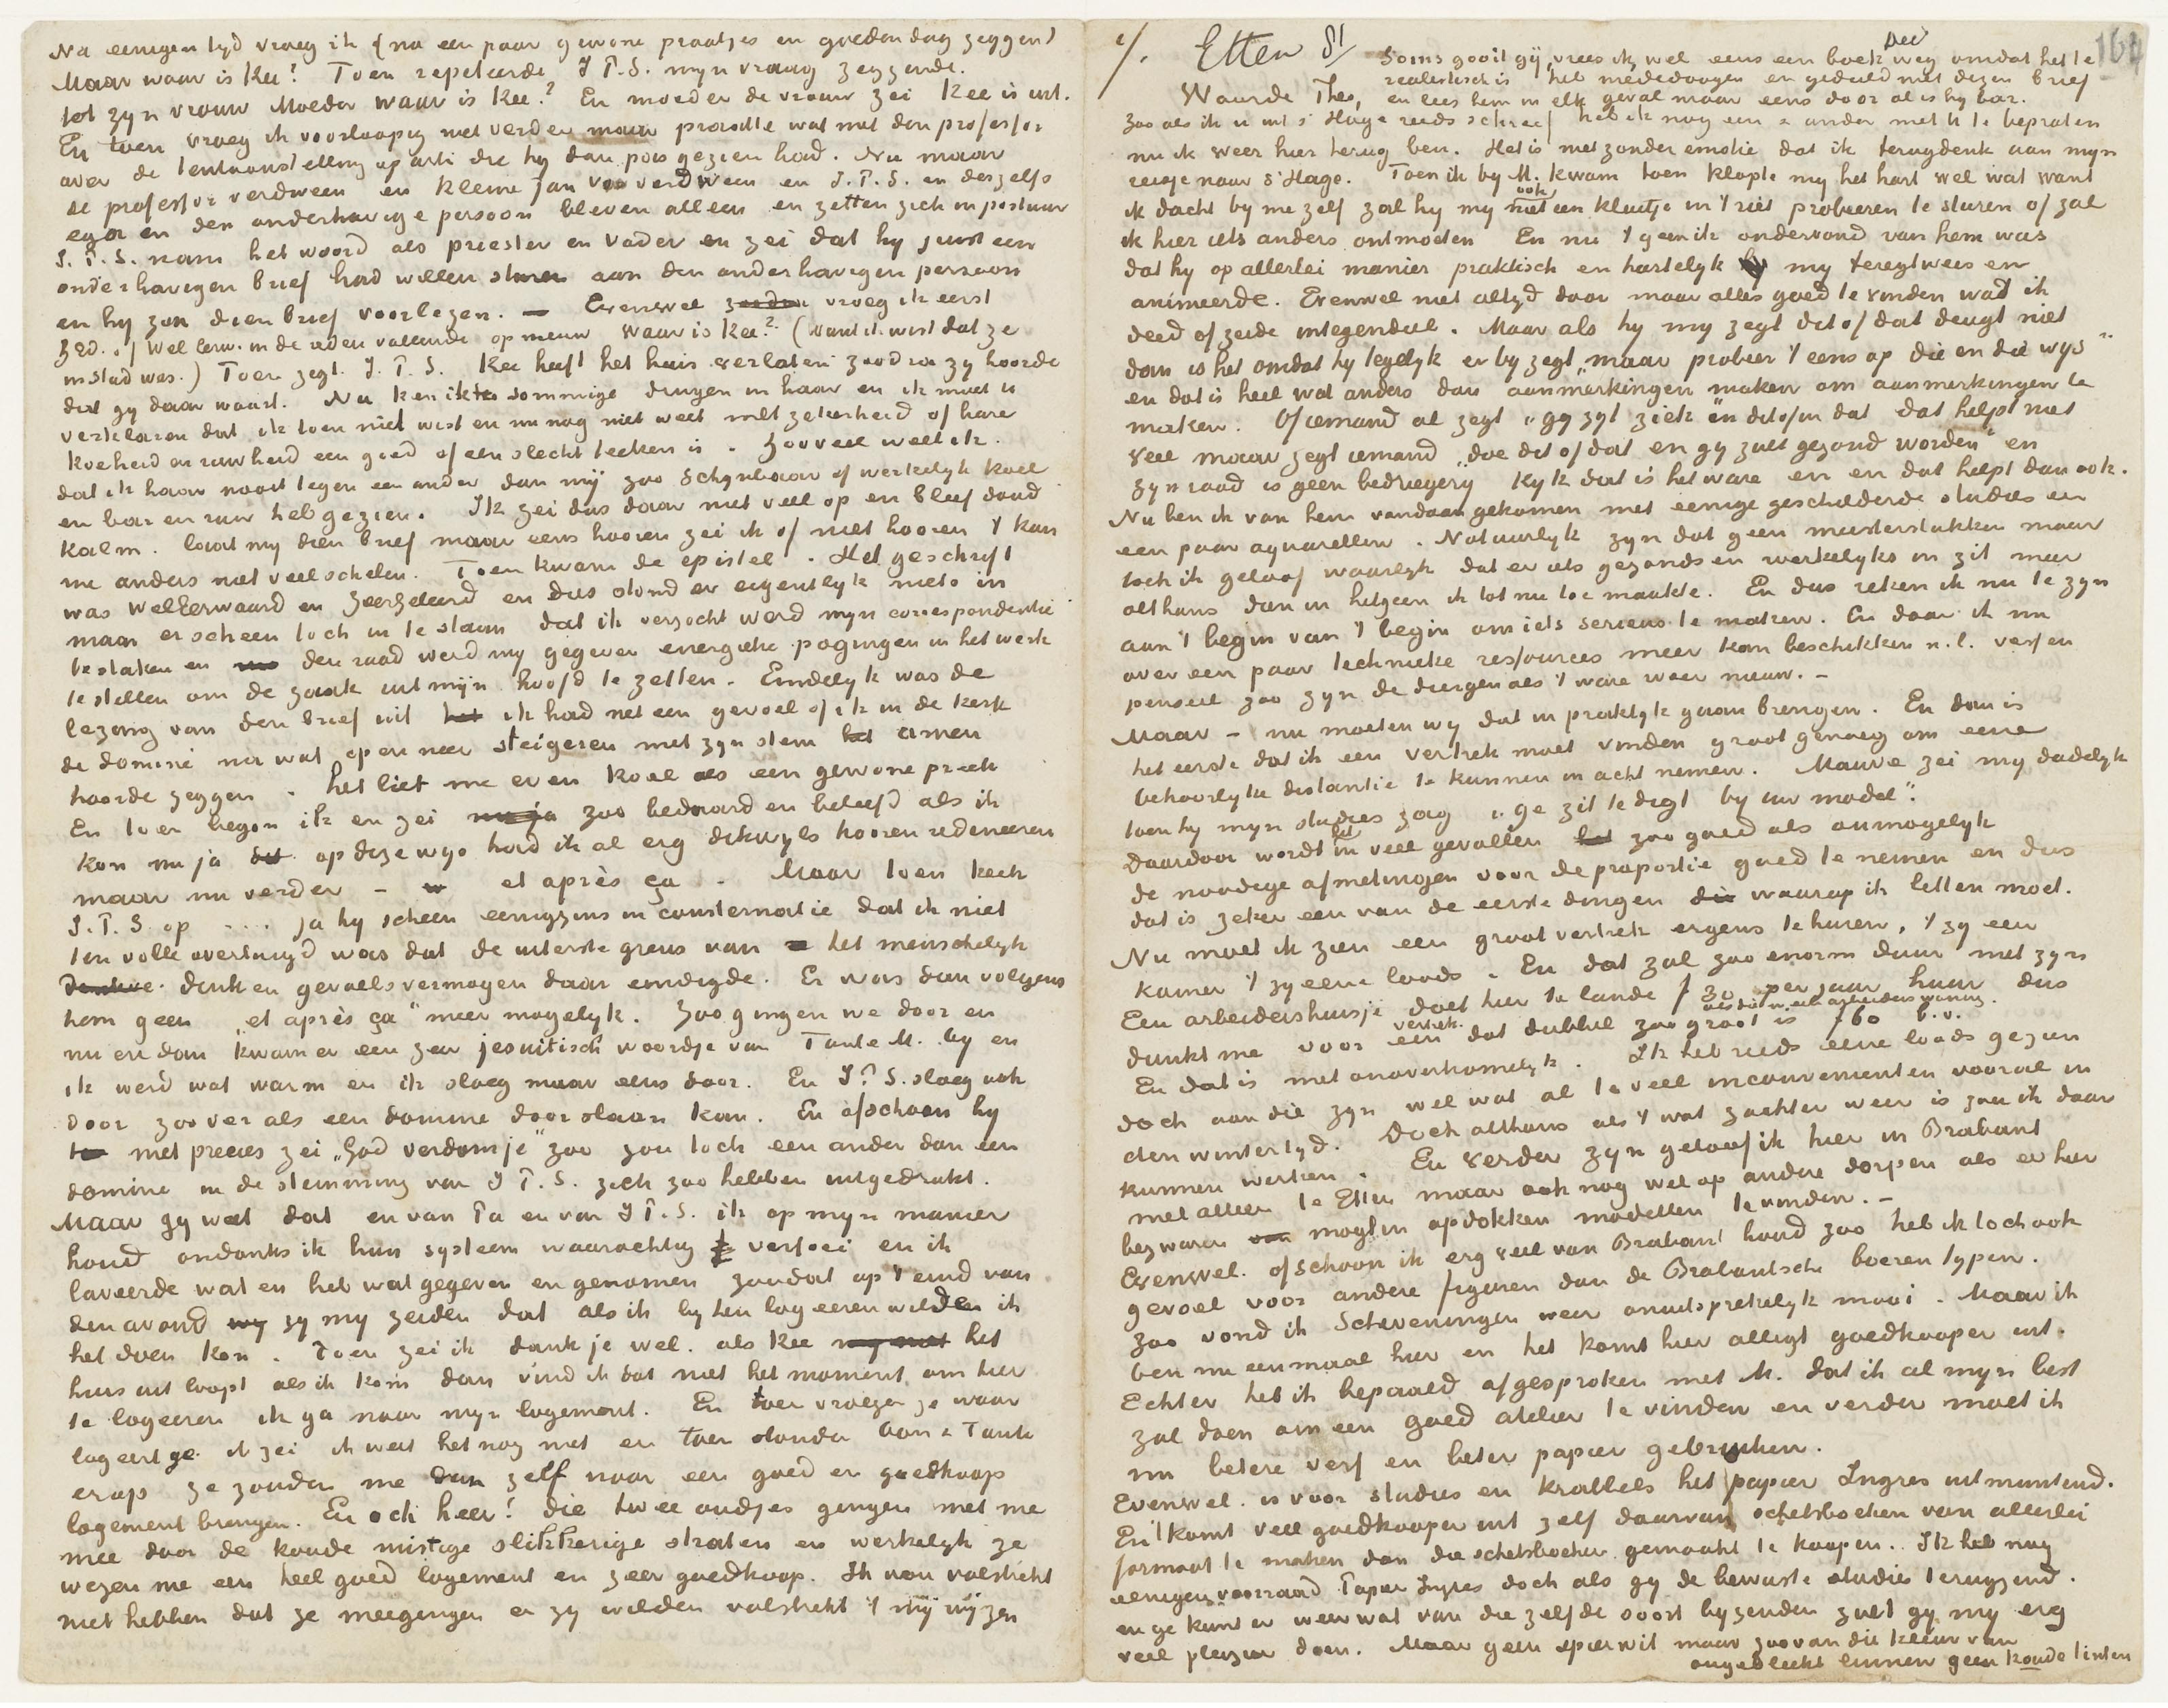 Na eenigen tijd vroeg ik (na een paar gewone praatjes en goeden dag zeggen)
Maar waar is Kee? Toen repeteerde J.P.S. mijn vraag zeggende.
tot zijn vrouw Moeder waar is Kee? En moeder de vrouw zei Kee is uit.
En toen vroeg ik voorloopig niet verder maar praatte wat met den professor
over de tentoonstelling op arti die hij dan pas gezien had. Nu maar
de professor verdween en kleine Jan Vos verdween en J.P.S. en deszelfs
ega en den onderhavige persoon bleven alleen en zetten zich in postuur
J.P.S. nam het woord als priester en Vader en zei dat hij juist een
onderhavigen brief had willen sturen aan den onderhavigen persoon
en hij zou dien brief voorlezen. — Evenwel vroeg ik eerst
ZEd. of WelEerw. in de reden vallende opnieuw Waar is Kee? (want ik wist dat ze
in stad was.) Toen zegt J.P.S. Kee heeft het huis verlaten zoodra zij hoorde
dat gij daar waart. Nu ken ik sommige dingen in haar en ik moet u
verklaren dat ik toen niet wist en nu nog niet weet met zekerheid of hare
koelheid en ruwheid een goed of een slecht teeken is. Zooveel weet ik.
dat ik haar nooit tegen een ander dan mij zoo schijnbaar of werkelijk koel
en bar en ruw heb gezien. Ik zei dus daar niet veel op en bleef dood
kalm. laat mij dien brief maar eens hooren zei ik of niet hooren 't kan
me anders niet veel schelen. Toen kwam de epistel. Het geschrift
was WelEerwaard en Zeergeleerd en dus stond er eigentlijk niets in
maar er scheen toch in te staan dat ik verzocht werd mijn correspondentie
te staken en den raad werd mij gegeven energieke pogingen in het werk
te stellen om de zaak uit mijn hoofd te zetten. Eindelijk was de
lezing van den brief uit ik had net een gevoel of ik in de kerk
de domine na wat op en neer steigeren met zijn stem amen
hoorde zeggen. het liet me even koel als een gewone preek
En toen begon ik en zei zoo bedaard en beleefd als ik
kon nu ja op deze wijs had ik al erg dikwijls hooren redeneeren
maar nu verder – et après ça. Maar toen keek
J.P.S. op ... ja hij scheen eenigzins in consternatie dat ik niet
ten volle overtuigd was dat de uiterste grens van het menschelijk
denk en gevoelsvermogen daar eindigde. Er was dan volgens
hem geen „et après ça" meer mogelijk. Zoo gingen we door en
nu en dan kwam er een zeer jesuitisch woordje van Tante M. bij en
ik werd wat warm en ik sloeg maar eens door. En J.P.S. sloeg ook
door zoo ver als een domine doorslaan kan. En ofschoon hij
niet precies zei „God verdomje" zoo zou toch een ander dan een
domine in de stemming van J.P.S. zich zoo hebben uitgedrukt.
Maar gij weet dat en van Pa en van J.P.S. ik op mijn manier
houd ondanks ik hun systeem waarachtig verfoei en ik
laveerde wat en heb wat gegeven en genomen zoodat op 't eind van
den avond zij mij zeiden dat als ik bij hen logeeren wilde ik
het doen kon. Toen zei ik dank je wel. als Kee het
huis uit loopt als ik kom dan vind ik dat niet het moment om hier
te logeeren ik ga naar mijn logement. En toen vroegen ze waar
logeert ge ik zei ik weet het nog niet en toen stonden Oom & Tante
erop ze zouden me zelf naar een goed en goedkoop
logement brengen. En och heer! die twee oudjes gingen met me
mee door de koude mistige slikkerige straten en werkelijk ze
wezen me een heel goed logement en zeer goedkoop. Ik wou volstrekt
niet hebben dat ze meegingen en zij wilden volstrekt 't mij wijzen
1/. Etten 81
164
Soms gooit gij vrees ik wel eens een boek weg omdat het te
realistisch is heb mededoogen en geduld met dezen brief
Waarde Theo, en lees hem in elk geval maar eens door al is hij bar.
zoo als ik u uit s' Hage reeds schreef heb ik nog een & ander met u te bepraten
nu ik weer hier terug ben. Het is niet zonder emotie dat ik terugdenk aan mijn
reisje naar s'Hage. Toen ik bij M. kwam toen klopte mij het hart wel wat want
ik dacht bij me zelf zal hij mij ook een kluitje in 't riet probeeren te sturen of zal
ik hier iets anders ontmoeten En nu 't geen ik ondervond van hem was
dat hij op allerlei manier praktisch en hartelijk mij teregtwees en
animeerde. Evenwel niet altijd door maar alles goed te vinden wat ik
deed of zeide integendeel. Maar als hij mij zegt dit of dat deugt niet
dan is het omdat hij tegelijk er bij zegt „maar probeer 't eens op die en die wijs"
en dat is heel wat anders dan aanmerkingen maken om aanmerkingen te
maken. Of iemand al zegt „gij zijt ziek" en dit of dat dat helpt niet
veel maar zegt iemand „doe dit of dat en gij zult gezond worden" en
zijn raad is geen bedriegerij Kijk dat is het ware en en dat helpt dan ook.
Nu ben ik van hem vandaan gekomen met eenige geschilderde studies en
een paar aquarellen. Natuurlijk zijn dat geen meesterstukken maar
toch ik geloof waarlijk dat er iets gezonds en werkelijks in zit meer
althans dan in hetgeen ik tot nu toe maakte. En dus reken ik nu te zijn
aan 't begin van 't begin om iets serieus te maken. En daar ik nu
over een paar technieke ressources meer kan beschikken n.l. verf en
penseel zoo zijn de dingen als 't ware weer nieuw. —
Maar – nu moeten wij dat in praktijk gaan brengen. En dan is
het eerste dat ik een vertrek moet vinden groot genoeg om eene
behoorlijke distantie te kunnen in acht nemen. Mauve zei mij dadelijk
toen hij mijn studies zag „ge zit te digt bij uw model".
Daardoor wordt het in veel gevallen zoo goed als onmogelijk
de noodige afmetingen voor de proportie goed te nemen en dus
dat is zeker een van de eerste dingen waarop ik letten moet.
Nu moet ik zien een groot vertrek ergens te huren, 't zij een
kamer 't zij eene loods. En dat zal zoo enorm duur niet zijn
Een arbeidershuisje doet hier te lande f 30 per jaar huur dus
dunkt me voor een vertrek dat dubbel zoo groot is als dat in een arbeiderswoning. f 60 b.v.
En dat is niet onoverkomelijk. Ik heb reeds eene loods gezien
doch aan die zijn wel wat al te veel inconvenienten vooral in
den wintertijd. Doch althans als 't wat zachter weer is zou ik daar
kunnen werken. En verder zijn geloof ik hier in Brabant
niet alleen te Etten maar ook nog wel op andere dorpen als er hier
bezwaren mogten opdokken modellen te vinden. —
Evenwel. ofschoon ik erg veel van Brabant houd zoo heb ik toch ook
gevoel voor andere figuren dan de Brabantsche boeren typen.
Zoo vond ik Scheveningen weer onuitsprekelijk mooi. Maar ik
ben nu eenmaal hier en het komt hier alligt goedkooper uit.
Echter heb ik bepaald afgesproken met M. dat ik al mijn best
zal doen om een goed atelier te vinden en verder moet ik
nu betere verf en beter papier gebruiken.
Evenwel. is voor studies en krabbels het papier Ingres uitmuntend.
En 't komt veel goedkooper uit zelf daarvan schetsboeken van allerlei
formaat te maken dan die schetsboeken gemaakt te koopen. Ik heb nog
eenigen voorraad Papier Ingres doch als gij de bewuste studies terugzend.
en ge kunt er weer wat van die zelfde soort bijzenden zult gij mij erg
veel pleizier doen. Maar geen spierwit maar zoo van die kleur van
ongebleekt linnen geen koude tinten